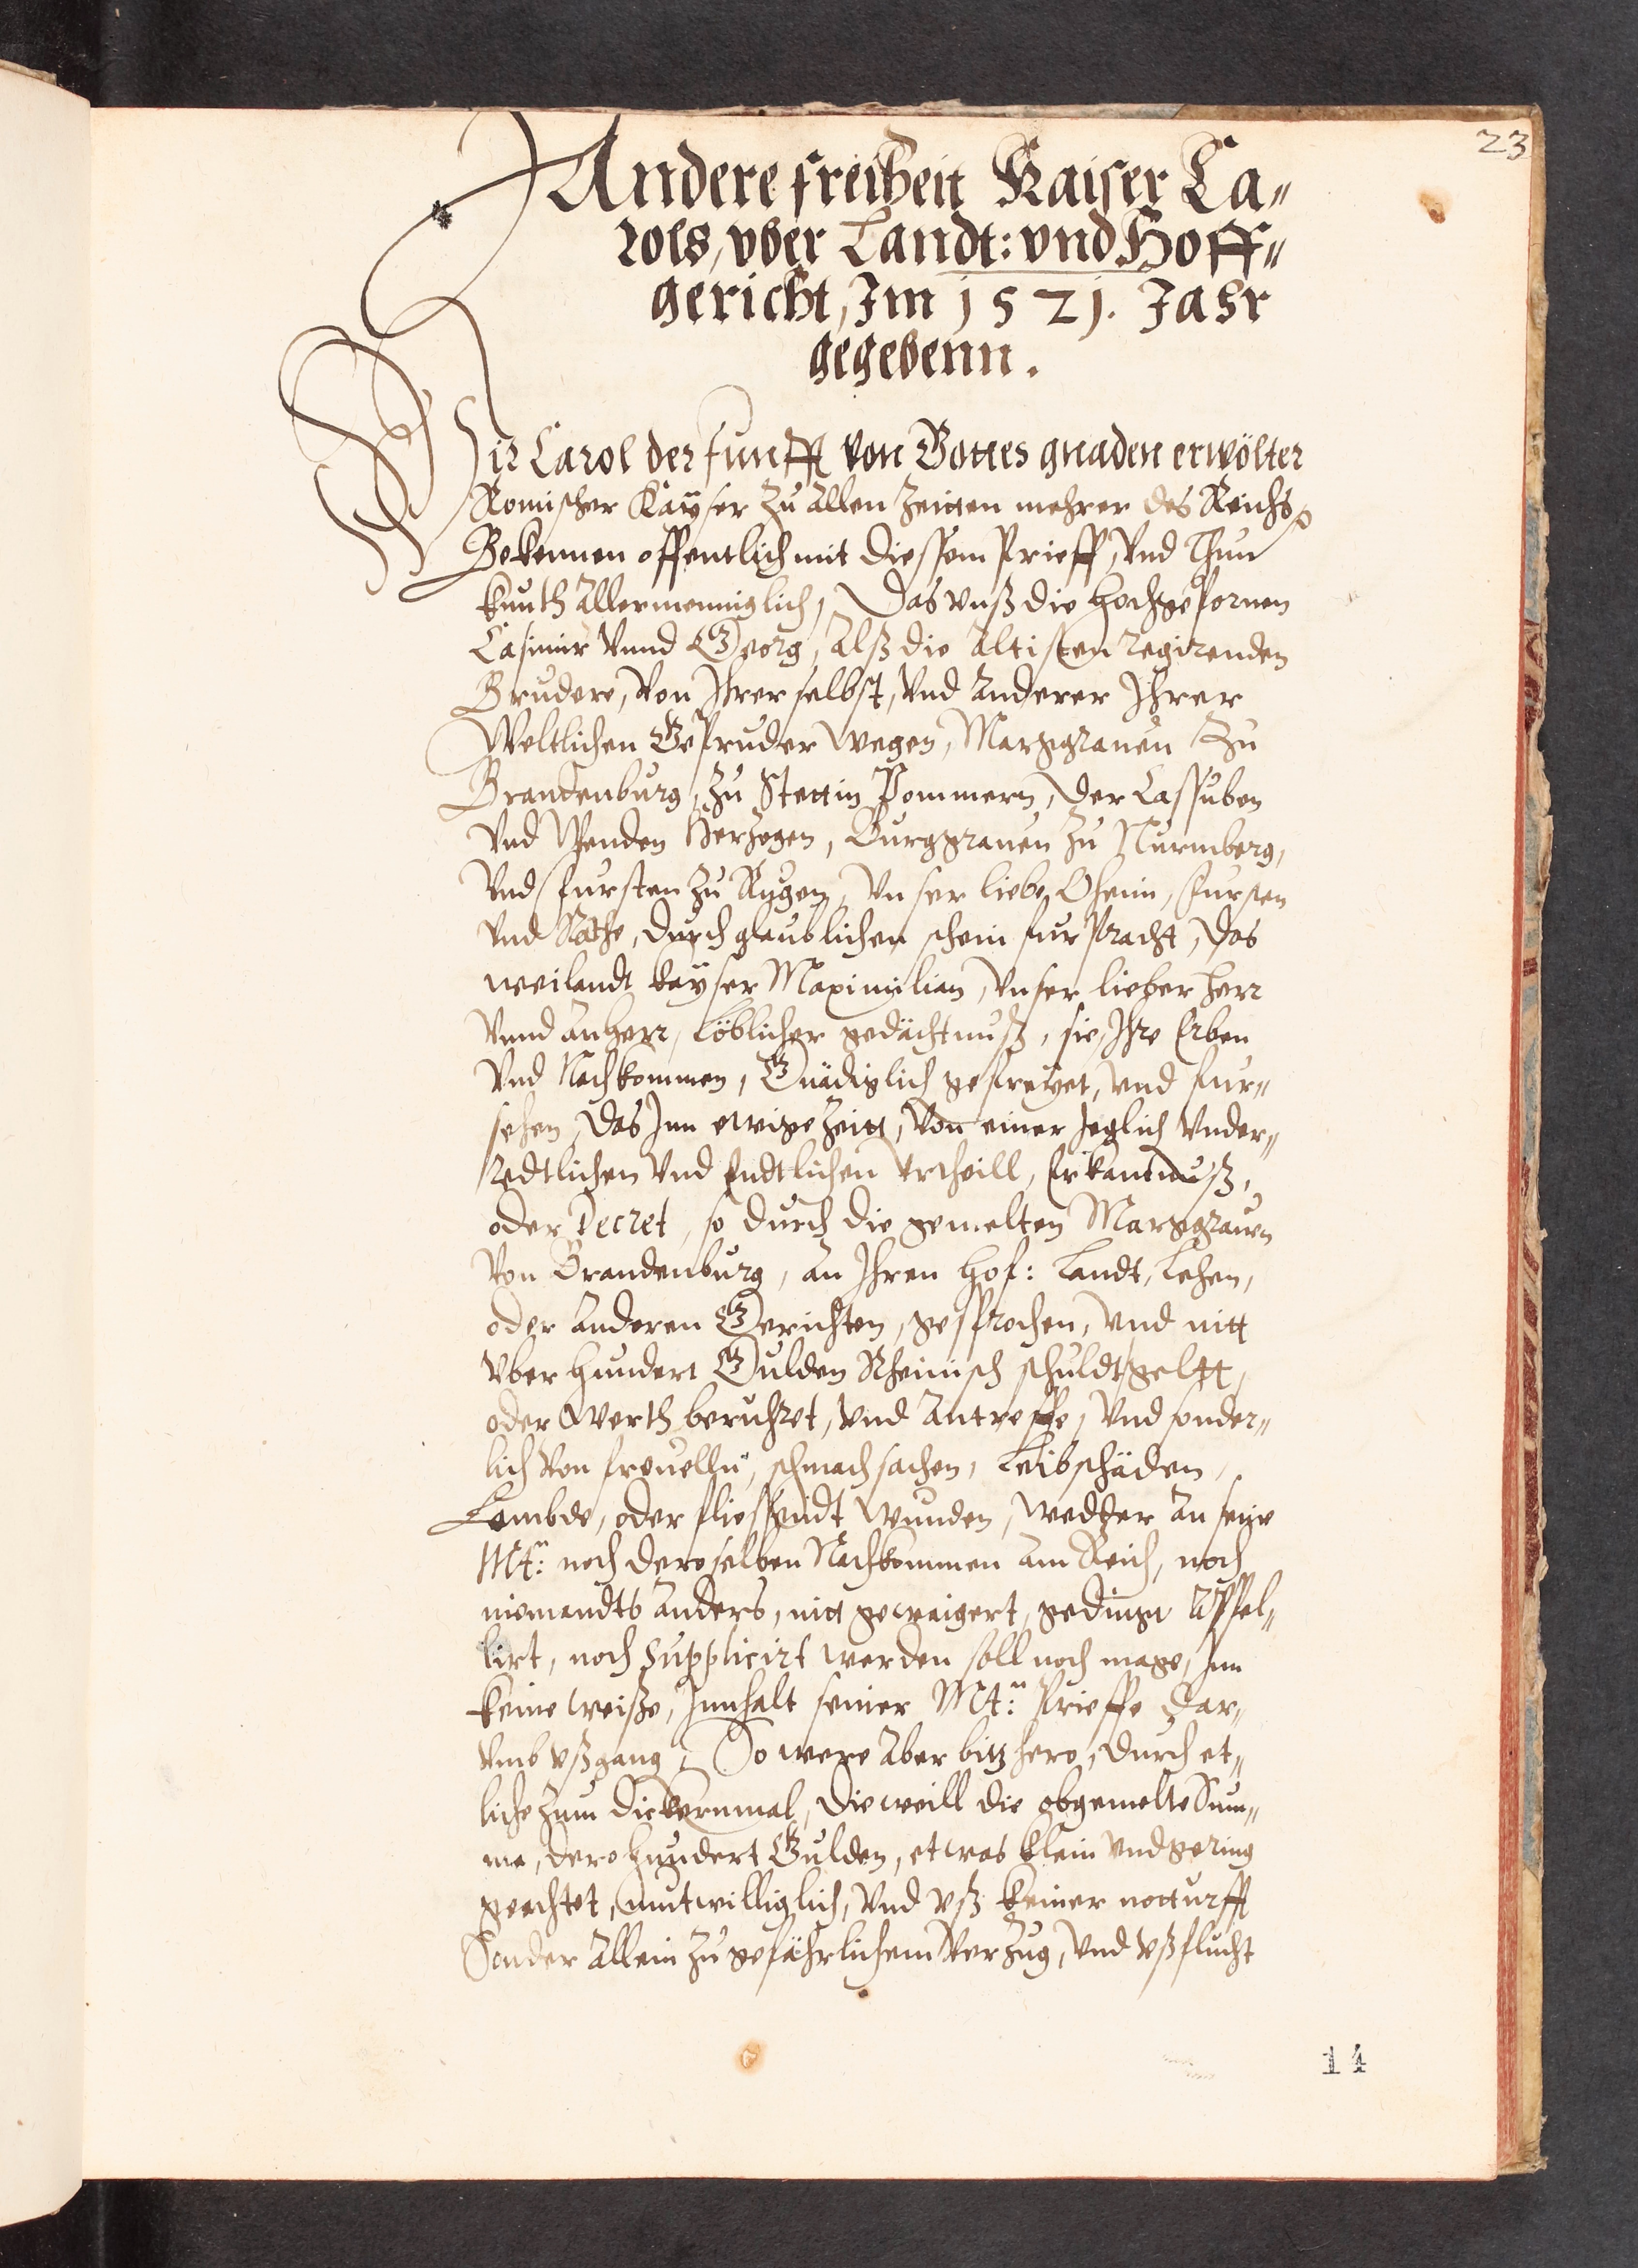 23
Andere freiheit Kaiser Ca„
rols, vber Landt: vnd Hoff„
gericht, Im 1521. Jahr
gegebenn.
Wir Carol der funfft von Gottes gnaden erwölter
Romischer Kayser zu allen zeitten mehrer des Reichs
Bekennen offentlich mit diessem Prieff, vnd Thun
kunth allermenniglich, Das vnß die hochgepornen
Casimir vnnd Georg, alß die altisten regirenden
Brudere, von Ihrer selbst, vnd anderer Ihrer
Weltlichen Gepruder wegen, Marggrauen zu
Brandenburg, zu Stettin Pommern, der Cassuben
vnd Wenden Herzogen, Burggrauen zu Nurmberg,
vnd fursten zu Rugen, vnser liebe Oheim, fursten
vnd Räthe, durch glaublichen schein furpracht, das
weilandt kayser Maximilian, vnser lieber herr
vnnd anherr, löblicher gedächtnuß, sie, Ihre Erben
vnd Nachkommen, Gnädiglich gefreyet, vnd fur„
sehen, das Inn ewige zeitt, von einer Jeglich vnder„
redtlichen vnd Endtlichen vrtheill, Erkantnuß,
oder Decret, so durch die gemelten Marggrauen
von Brandenburg, an Ihren hof: Landt, Lehen,
oder anderen Gerichten, gesprochen, vnd nitt
vber hundert Gulden Rheinisch schuldtgeltt,
oder werth beruhret, vnd antreffe, vnd sonder„
lich von freuelln, schmach sachen, Leibschäden,
Lembde, oder fliessendt wunden, wedder an seine
Mt: noch deroselben Nachkommen am Reich, noch
niemandts anders, nitt geweigert, gedingt Appel„
lirt, noch Supplicirt werden soll noch mage, Inn
keine weiße, Innhalt seiner Mt: Prieffe dar„
vmb vßgang, So were aber bitz hero, durch et„
liche zum dickernmal, die weill die obgemelte Sum„
me, dero hundert Gulden, etwas klein vnd gering
geachtet, mutwilliglich, vnd vß keiner notturfft
Sonder allein zu gefährlichem verzug, vnd vßflucht
14